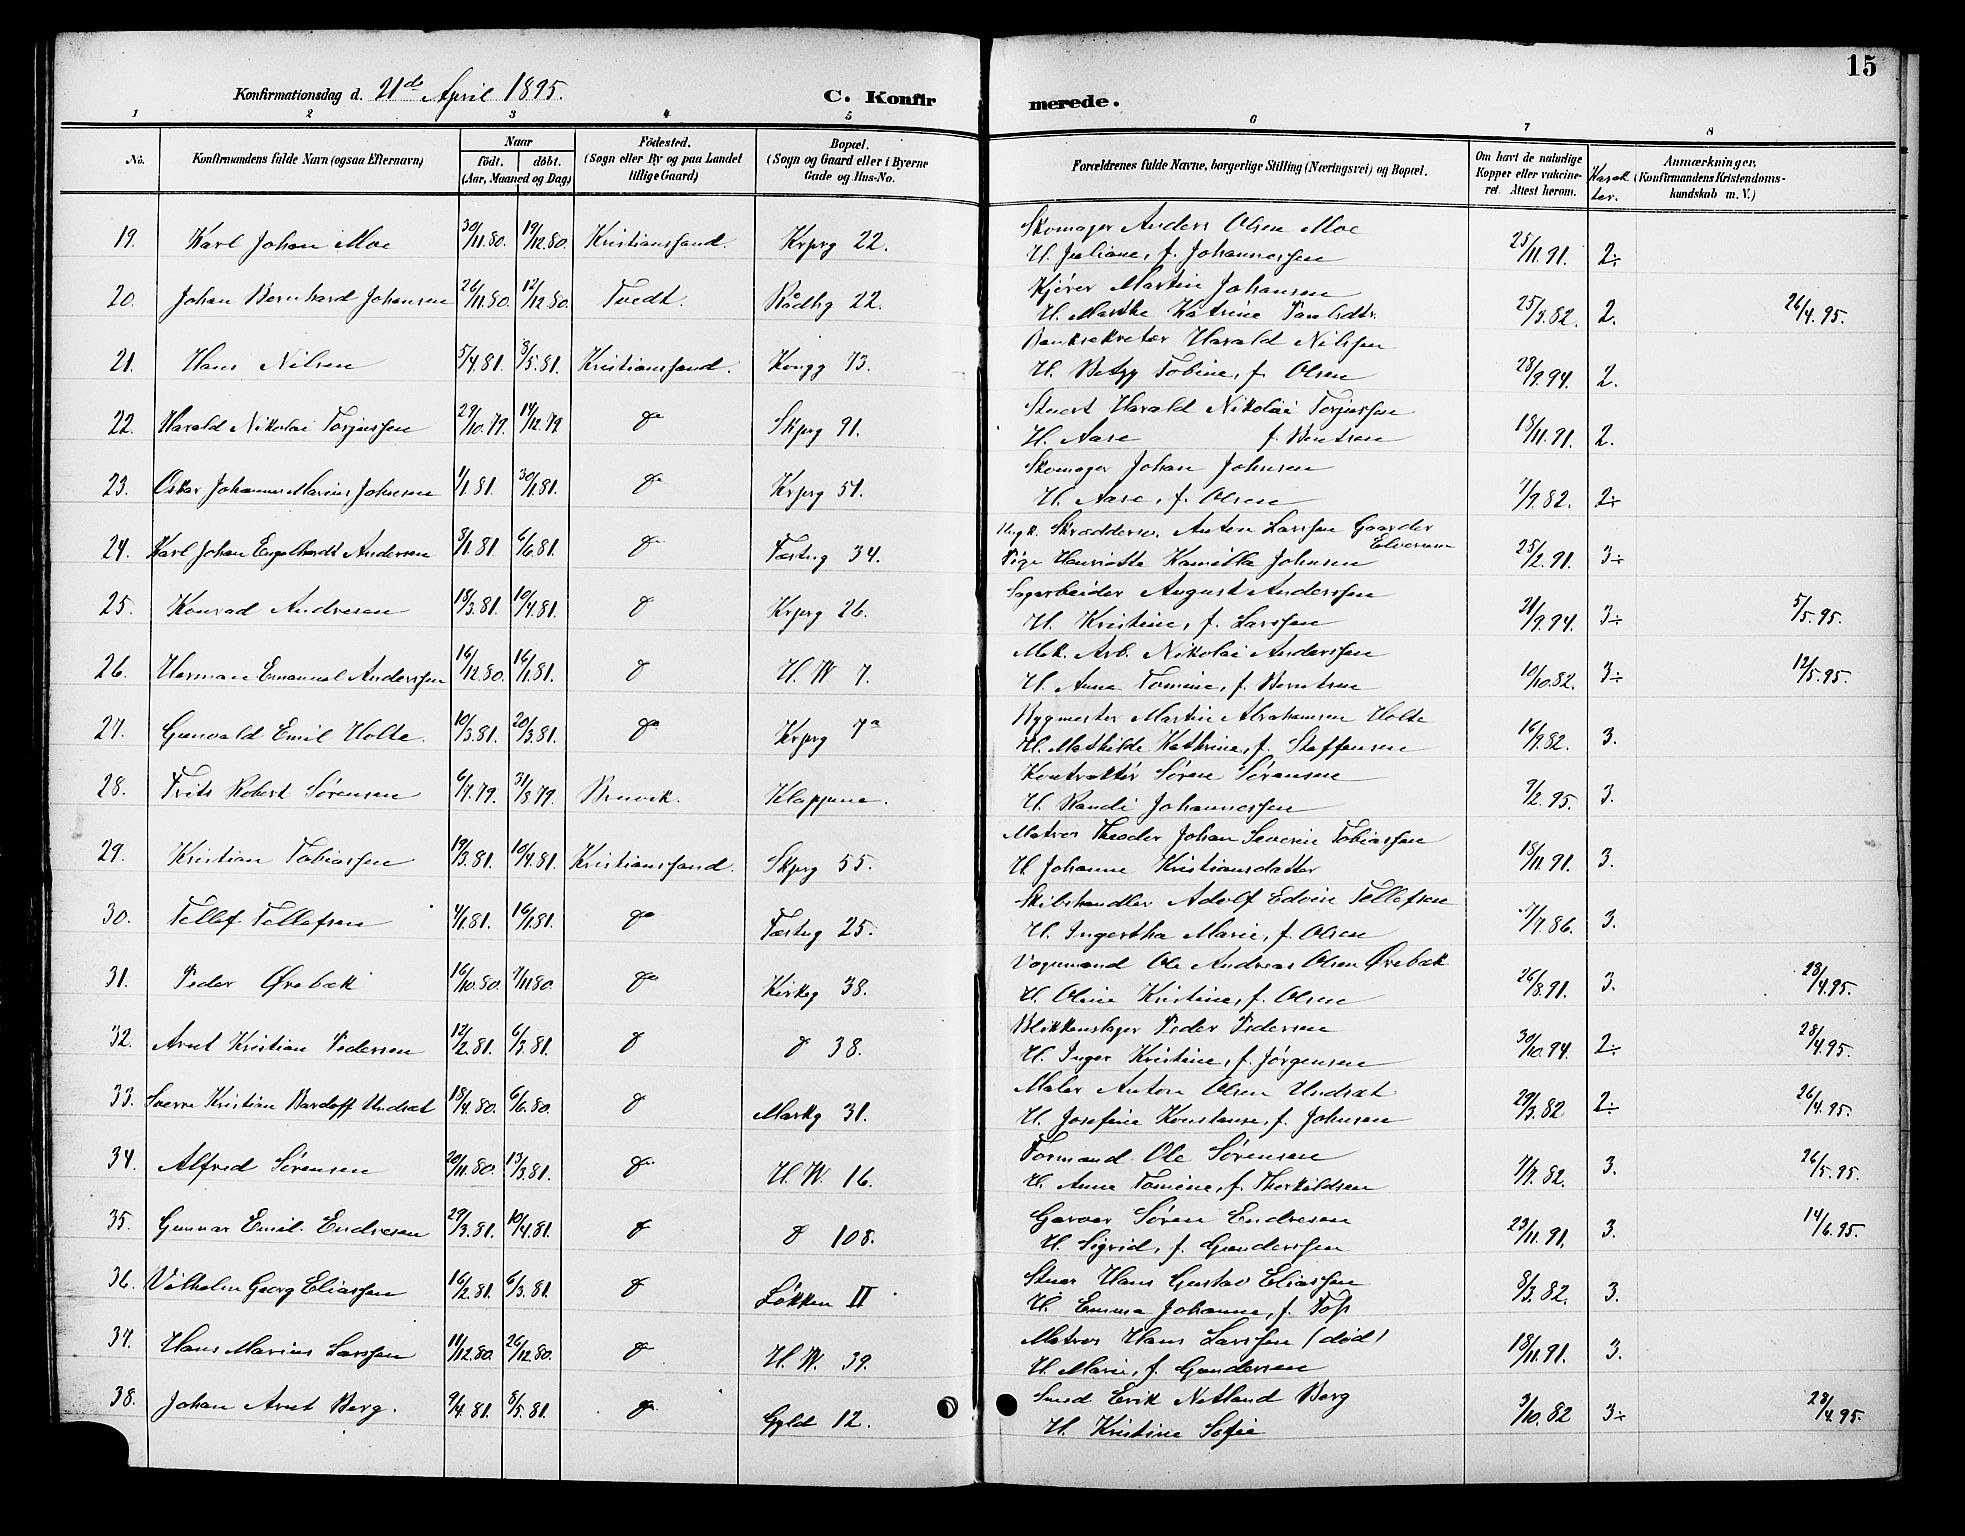 15
Konfirmationsdag d. 21de April 1895.
C. Konfir
merede.
1 2 3 4 5 6 7 8
No.
Konfirmandens fulde Navn (ogsaa Efternavn)
Naar
født. døbt.
(Aar, Maaned og Dag)
Födested.
(Sogn eller By og paa Landet
tillige Gaard)
Bopæl.
(Sogn og Gaard eller i Byerne
Gade og Hus-No.
Forældrenes fulde Navne, borgerlige Stilling (Næringsvei) og Bopæl.
Om havt de naturlige
Kopper eller vakcine-
ret. Attest herom.
Karak
ter.
Anmærkninger,
(Konfirmandens Kristendoms-
kundskab m. V.)
19. Karl Johan Moe 30/11.80. 19/12.80. Kristianssand. Krprg 22. Skomager Anders Olsen Moe
H. Juliane, f. Johannessen 25/11.91. 2÷
20. Johan Bernhard Johansen 26/11.80. 12/12.80. Tvedt. Rådhg 22. Kjører Martin Johansen
H. Marthe Katrine 25/3.82. 2. 26/4.95.
21. Hans Nilsen 5/4.81. 3/5.81. Kristianssand. Kongg 73. Banksekretær Harald Nilssen
H. Betzy Tobine, f. Olsen 28/9.94. 2.
22. Harald Nikolai Torjussen 29/10.79. 14/12.79 do Skprg 91. Stuert Harald Nikolai Torjussen
H. Aase f. Bentsen 18/11.91. 2.
23. Oskar Johannes Marius Johnsen 1/1.81. 30/1.81. do Krprg 51. Skomager Johan Johnsen
H. Aase, f. Olsen 7/9.82. 2÷
24. Karl Johan Engelhardt Andersen 3/1.81. 6/6.81. do Fæstng 34. Ungk. Skræddersv. Anton Larssen Gaarder
Elverum
Pige Henriette Kamilla Johnsen 25/2.91. 3÷
25. Konrad Andresen 18/3.81. 10/4.81. do Krprg 26. Sagarbeider August Anderssen
H. Kristine, f. Larssen 21/9.94. 3÷ 5/5.95.
26. Herman Emanuel Anderssen 16/12.80. 16/1.81. do H. W 7. Mek. Arb. Nikolai Anderssen
H. Anne Tomine, f. Berntsen 10/10.82. 3÷ 12/5.95.
27. Gunvald Emil Holte. 10/3.81. 20/3.81. do Krprg 7a Bygmester Martin Abrahamsen Holte
H. Mathilde Kathrine, f. Steffensen 16/9.82. 3.
28. Frits Robert Sørensen 6/7.79. 31/8.79. Bruvik. Klappene. Kontraktör Sören Sörensen
H. Randi Johannessen 9/2.95. 3.
29. Kristian Tobiassen 19/3.81. 10/4.81. Kristianssand. Skprg 55. Matros Theodor Johan Severin Tobiassen
H. Johanne Kristiansdatter 18/11.91. 3.
30. Tellef Tellefsen 4/1.81. 16/1.81. do Fæstng 25. Skibshandler Adolf Edvin Tellefsen
H. Ingertha Marie, f. Olsen 7/7.86. 3.
31. Peder Ørebæk 16/10.80. 7/11.80. do Kirkeg 38. Vognmand Ole Andreas Olsen Ørebæk
H. Oline Kristine, f. Olsen 26/8.91. 3. 28/4.95.
32. Arnt Kristian Pedersen 12/2.81. 6/3.81. do do 38. Blikkenslager Peder Pedersen
H. Inger Kristine, f. Jørgensen 30/10.94. 2÷ 28/4.95.
33. Sverre Kristian Bardoff Undsæt 18/4.80. 6/6.80. do Markg 31. Maler Anton Olsen Undsæt
H. Josefine Konstanse, f. Johnsen 29/3.82 2÷ 26/4.95.
34. Alfred Sørensen 20/11.80. 13/3.81. do H. W. 16. Formand Ole Sørensen
H. Anne Tomine, f. Therkildsen 7/7.82. 3. 26/5.95.
35. Gunnar Emil Endresen 29/3.81. 10/4.81. do do 108. Garver Søren Endresen
H. Sigrid, f. Gunderssen 23/11.91. 3. 14/6.95.
36. Vilhelm Georg Eliassen 16/2.81. 6/3.81. do Løkken II Stuer Hans Gustav Eliassen
H. Emma Johanne, f. Foss 8/3.82. 3.
37. Hans Marius Larssen 11/12.80. 26/12.80. do H. W. 39. Matros Hans Larssen (død)
H. Marie, f. Gundersen 18/11.91. 3.
38. Johan Arnt Berg. 9/4.81. 8/5.81. do Gyld 12. Smed Erik Netland Berg
H. Kristine Sofie 3/10.82 3÷ 28/4.95.